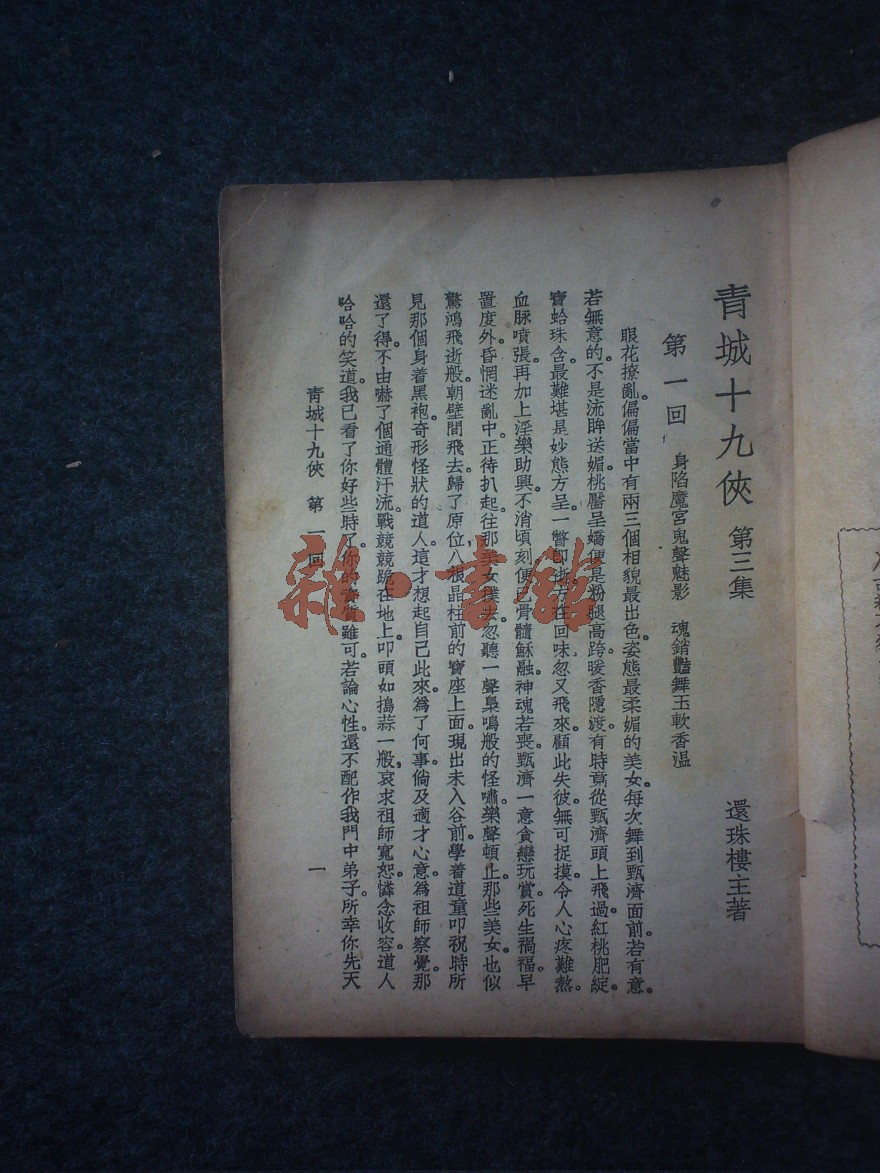 青城十九俠 第三集
還珠樓主著
第一回 身陷魔宮鬼聲魅影 魂銷豔舞玉軟香溫
眼花撩亂。偏偏當中有兩三個相貌最出色。姿態最柔媚的美女。每次舞到甄濟面前。若有意。
若無意的。不是流眸送媚。桃靨呈嬌。便是粉腿高跨。暖香隱渡。有時竟從甄濟頭上飛過。紅桃肥綻。
寶蛤珠含。最難堪是妙態方呈。一瞥即逝。方在回味。忽又飛來。顧此失彼。無可捉摸。令人心疼難熬。
血脉噴張。再加上淫樂助興。不消頃刻。便已骨髓穌融。神魂若喪。甄濟一意貪戀玩賞。死生禍福。早
置度外。昏惘迷亂中。正待扒起。往那美女撲去。忽聽一聲梟鳴般的怪嘯。樂聲頓止。那些美女。也似
驚鴻飛逝般。朝壁間飛去。歸了原位。八根晶柱前的寶座上面。現出未入谷前。學着道童叩祝時所
見那個身着黑袍。奇形怪狀的道人。這才想起自己此來。為了何事。倘及適才心意。為祖師察覺。那
還了得。不由嚇了個通體汗流。戰競競跪在地上。叩頭如搗蒜一般。哀求祖師寬恕。憐念收容。道人
哈哈的笑道。我已看了你好些時了。你的資質雖可。若論心性。還不配作我門中弟子。所幸你先天
青城十九俠 第一回
一
雜·書館